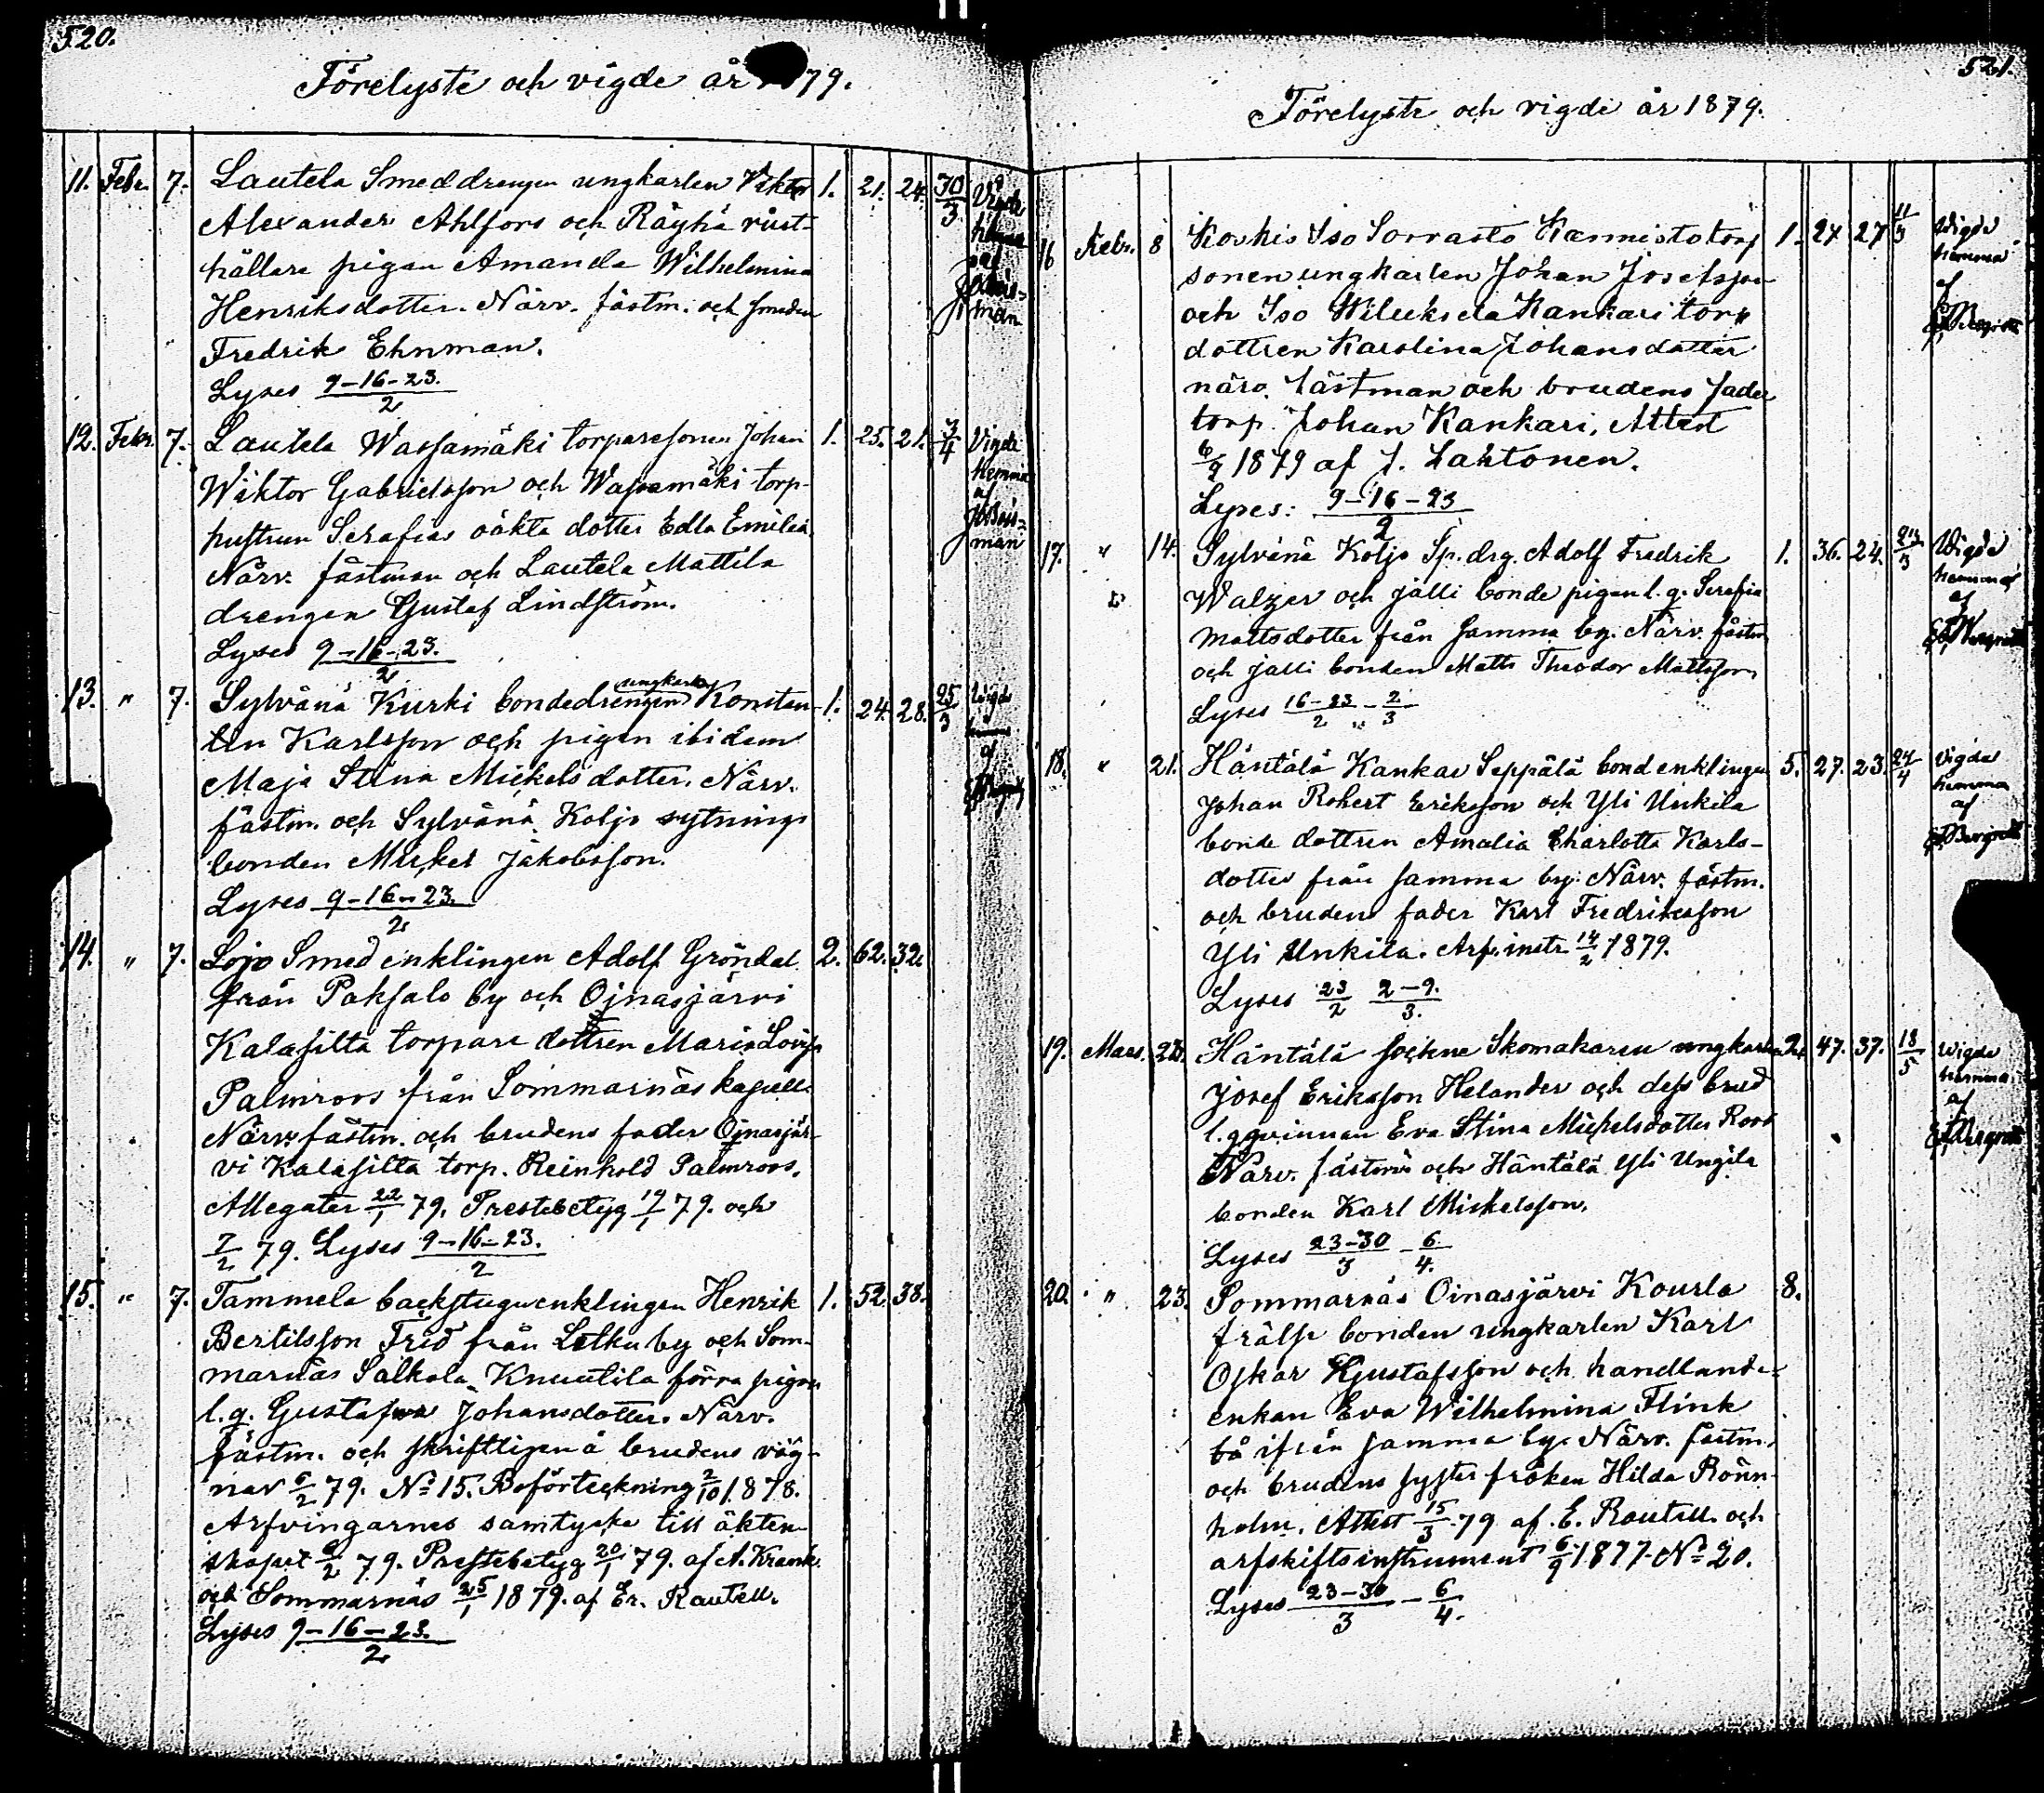 520.
Förelyste och vigde år 1879.
11. Febr. 7. Lautela Smeddrengen ungkarlen Viktor 1. 21. 24. 30/3 Vigde
Alexander Ahlfors och Räyhä rust-
hållare pigan Amanda Wilhelmina
Henriksdotter. Närv. fästm. och smeden
Fredrik Ehnman.
Lyses 9-16-23./2
12. Febr. 7. Lautela Wassamäki torparesonen Johan 1. 25. 21. 3/4 Vigde hemma af
Wiktor Gabrielsson och Wassamäki torp-
hustrun Serafias oäkta dotter Edla Emilia.
Närv. fästman och Lautela Mattila
drengen Gustaf Lindström.
Lyses 9-16-23./2
13. " 7. Sylvänä Kurki bondedrengen ungkarlen Konstan- 1. 24. 28. 25/3
tin Karlsson och pigan ibidem
Maja Stina Mickelsdotter. Närv.
fästm. och Sylvänä Koljo sytnings
bonden Mickel Jakobsson.
Lyses 9-16-23./2
14. " 7. Lojo Smed enklingen Adolf Gröndal 2. 62. 32.
från Paksalo by och Oinasjärvi
Kalasilta torpare dottren Maria Lovisa
Palmroos från Sommarnäs kapell.
Närv. fästm. och brudens fader Oinasjär-
vi Kalasilta torp. Reinhold Palmroos.
Allegater 22/1 79. Prestebetyg 19/1 79. och
7/2 79. Lyses 9-16-23./2
15. " 7. Tammela backstuguenklingen Henrik 1. 52. 38.
Bertilsson Frid från Letku by och Som-
marnäs Salkola Knuutila förra pigan
l.q. Gustafva Johansdotter. Närv.
fästm. och skriftligen å brudens väg-
nar 6/2 79. No 15. Boförteckning 2/10 1878.
Arfvingarnes samtycke till äkten-
skapet 79. Prestebetyg 20/1 79. af A. Krank.
och Sommarnäs 25/1 1879. af Er. Rautell.
Lyses 9-16-23./2
521.
Förelyste och vigde år 1879.
16 Febr. 8 Koskis Iso Sorrasto Kannisto torp 1. 27 27 11/3 Wigde hemma af
sonen ungkarlen Johan Josefsson
och Iso Wiluksela Kankari torp
dottren Karolina Johansdotter
närv. fästman och brudens fader
torp. Johan Kankari, Attest
1879 af J. Lahtonen.
Lyses: 9-16-23/2
17. " 14. Sylvänä Koljo Sp. drg. Adolf Fredrik 1. 36. 24. Wigde hemma af
Walzer och jälli bonde pigan l. q. Serafia
Mattsdotter från samma by. Närv. fästm
och jälli bonden Matts Theodor Mattsson
Lyses 16-23/2 - 2/3
18. " 21. Häntälä Kankas Seppälä bondenklingen 5. 27. 23. 24/4 Vigde hemma af
Johan Robert Eriksson och Yli Unkila
bonde dottren Amalia Charlotta Karls-
dotter från samma by. Närv. fästm.
och brudens fader Karl Fredriksson
Yli Unkila. Arf. instr. 14/2 1879.
Lyses 23/2 2-9./3.
19. Mars. 23. Häntälä sockne Skomakaren ungkarlen 2. 47. 37. 18/5 Wigde hemma af
Josef Eriksson Helander och dess brud
l. qvinnan Eva Stina Mickelsdotter Roos
Närv. fästm och Häntälä Yli Ungila
bonden Karl Mickelsson.
Lyses 23-30/3 - 6/4.
20. " 23. Sommarnäs Oinasjärvi Kourla 8.
frälse bonden ungkarlen Karl
Oskar Gustafsson och handlande-
enkan Eva Wilhelmina Flink
bå ifrån samma by. Närv. fästm.
och brudens syster fröken Hilda Rönn-
holm. Attest 15/3 79 af E. Rautell. och
arfskiftsinstrument 6/9 1877. No 20.
Lyses 23-30/3 - 6/4.